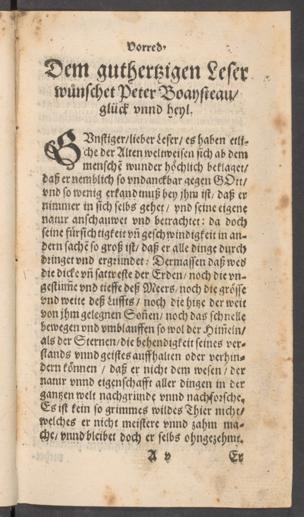 Vorred.
Dem guthertzigen Leser
wünschet Peter Boaysteau/
glück vnnd heyl.
GVnstiger/lieber Leser/es haben etli-
che der Alten weltweisen sich ab dem
menschē wunder höchlich beklaget/
daß er nemblich so vndanckbar gegen GOtt/
vnd so wenig erkandtnuß bey jhm ist/ daß er
nimmer in sich selbs gehet/ vnd seine eigene
natur anschauwet vnd betrachtet: da doch
seine fürsichtigkeit vñ geschwindigkeit in an-
dern sachē so groß ist/ daß er alle dinge durch
dringet vnd ergründet: Dermassen daß weder
die dicke vñ satteste der Erden/ noch die vn-
gestüme vnd tieffe deß Meers/ noch die grösse
vnd weite deß Luffts/ noch die hitz der weit
von jhm gelegnen Soñen/ noch das schnelle
bewegen vnd vmblauffen so wol der Hiṁeln/
als der Sternen/ die behendigkeit seines ver-
stands vnnd geistes auffhalten oder verhin-
dern können / daß er nicht dem wesen / der
natur vnnd eigenschafft aller dingen in der
gantzen welt nachgründe vnnd nachforsche.
Es ist kein so grimmes wildes Thier nicht/
welches er nicht meistere vnnd zahm ma-
che/ vnnd bleibet doch er selbs ohngezehmt.
A v Er